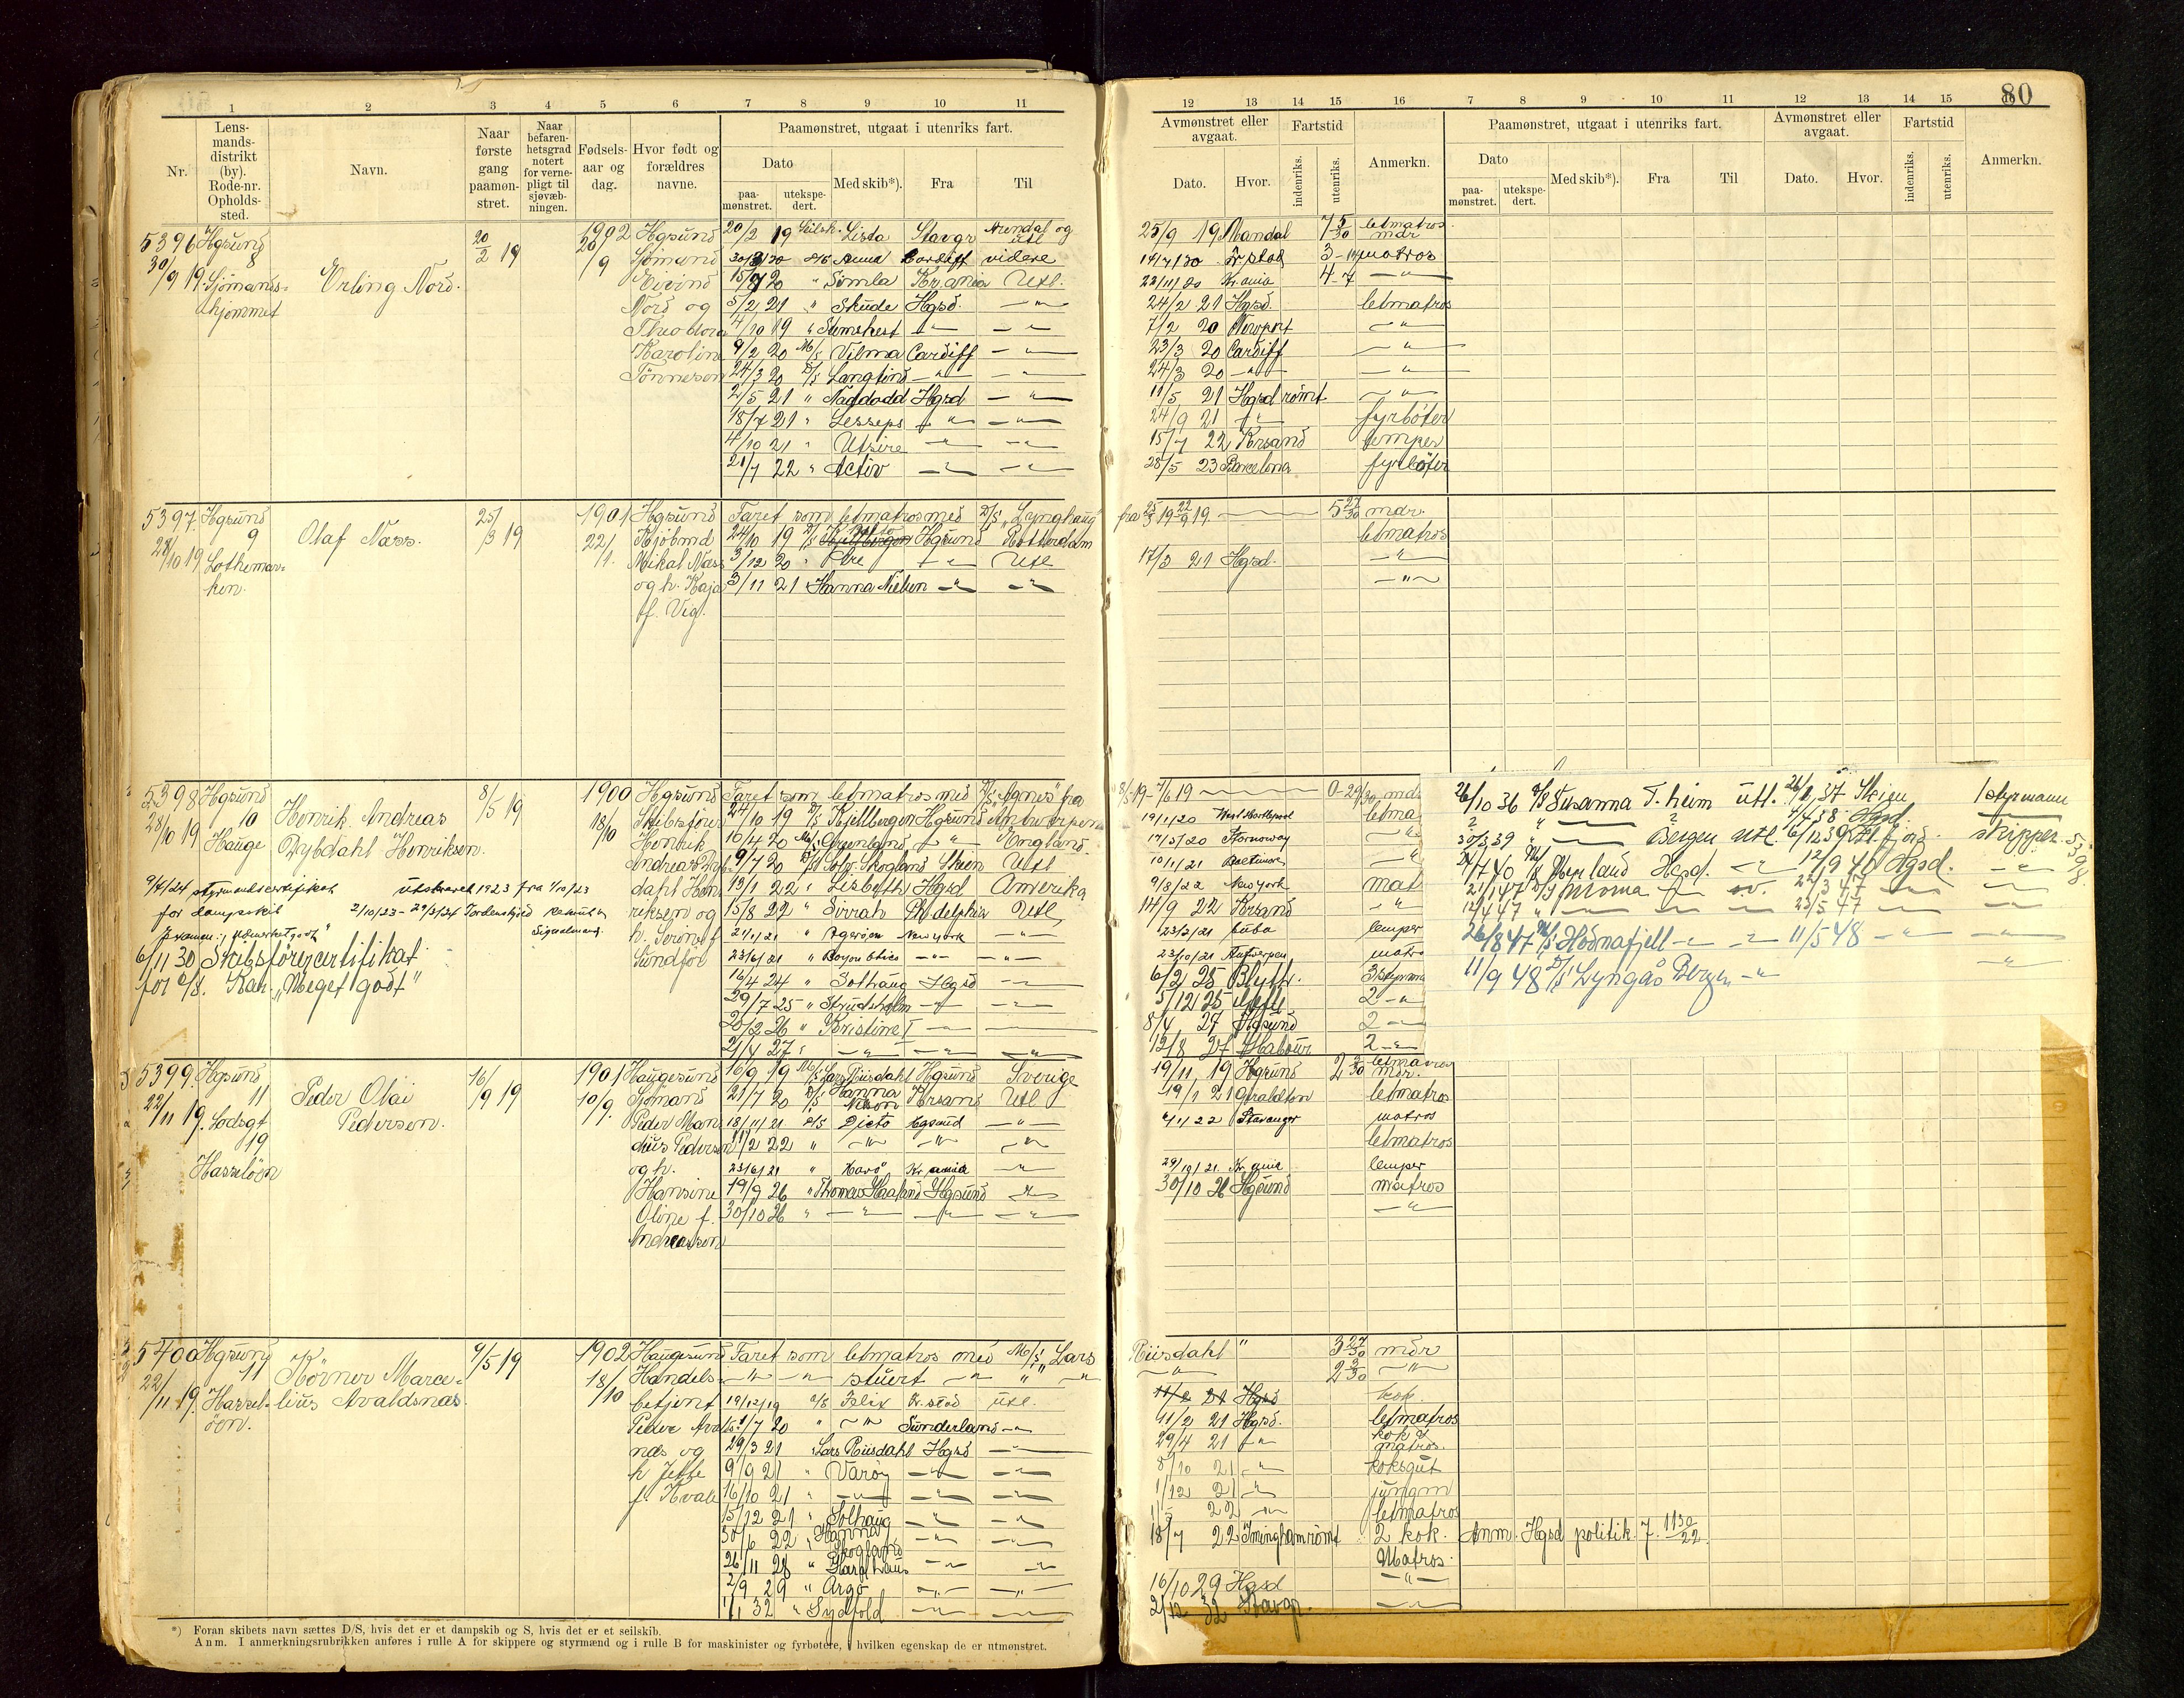 80
1 2 3 4 5 6 7 8 9 10 11
Nr.
Lens-
mands-
distrikt
(by).
Rode-nr.
Opholds-
sted.
Navn.
Naar
første
gang
paamøn-
stret.
Naar
befaren-
hetsgrad
notert
for verne-
pligt til
sjøvæb-
ningen.
Fødsels-
aar og
dag.
Hvor født og
forældres
navne.
Paamønstret, utgaat i utenriks fart.
Dato
paa-
mønstret.
utekspe-
dert.
Med skib*).
Fra
Til
5396 Hgsund
8
30/9 19. Sjömands-
hjemmet
Erling Nord.
20/2 19
1902
20/9
Hgsund
Sömand
Eivind
Nord og
Theodora
Karoline
Tönnesen
20/2 19 Seilsk. Lista Stavgr Arendal og utl
30/3/20 D/S Anna Cardiff videre
15/7 20 " Simla Kr.ania Utl.
5/2 21 " Skude Hgsd — " —
4/10 19 " — " — — " —
9/2 20 M/S Vilma Cardiff — " —
24/3 20 D/S Langtind — " — — " —
2/5 21 " Naddodd Hgsd — " —
18/7 21 " Lesseps — " — — " —
4/10 21 " Utsire — " — — " —
21/7 22 " Activ — " — — " —
5397. Hgsund
9
28/10 19 Lothemar-
ken.
Olaf Næss.
25/3 19
1901
22/1.
Hgsund
Mikal Næss
og h. Kaja
f. Vig.
Faret som letmatros med D/S "Lynghaug"
24/10 19 D/S Hgsund Rotterdam
3/12 20 " — " — Utl
3/11 21 Hanna Nielsen — " — — " —
5398 Hgsund
10
28/10 19 Hauge
Henrik Andreas
Rybdahl Henriksen.
8/5 19
1900
18/10
Hgsund
Skibsfører
Henrik
Andreas Ryb-
dahl Hen-
riksen og
h. Serine f.
Sundför
9/4/24 styrmandscertifikat
for dampskib
utskrevet 1923 fra 1/10/23
2/10/23 - 29/3/24 Tordenskjold
Signalmand.
6/11 30 Skibsförercertifikat
for D/S. Kar. "Meget godt"
Faret som letmatros med D/S "Agnes" fra
24/10 19 D/S Kjellbergen Hgsund Antwerpen
10/4 20 M/S Grønland — " — England.
9/7 20 D/S Solfr. Skogland Skien Utl
13/1 22 " Lisbeth Hgsd Amerika
15/8 22 " Sirrah Ph.delphia Utl
21/1/21 " Agersöen New York — " —
23/6/21 " Bayou Chico — " — — " —
16/4 24 " Solhaug Hgsd — " —
29/7 25 " Strudsholm — " — — " —
25/2 26 " Kristine I — " — — " —
21/4 27 " — " — — " — — " —
5399. Hgsund
11
22/11 19. Lodsgt
19
Hasselöen
Peder Olai
Pedersen.
16/9 19
1901
10/9.
Haugesund
Sjömand
Peder Man-
dius Pedersen
og h.
Hansine
Oline f.
Andreassen
16/9 19 M/S Lars Riisdahl Hgsund Sverige
21/7 20 D/S Hanna Nielsen Krsand Utl
18/11/21 D/S Dicto Egsund — " —
11/2 22 " — " — — " — — " —
23/6/21 " Havö Kr.ania — " —
19/9 26 " Thomas Haaland Hgsund — " —
30/10 26 " — " — — " — — " —
5400 Hgsund
11
22/11 19. Hassel-
öen.
Körner Marce-
lius Avaldsnæs.
9/5 19
1902
18/10
Haugesund
Handels-
betjent
Peder Avalds-
næs og
h. Jette
f. Kvale
Faret som letmatros med M/S "Lars
— " — — " — stuert — " — " — " —
19/12/19 D/S Felix Kr.stad utl.
1/7 20 " — " — Sunderland — " —
29/3 21 " Lars Riisdahl Hgsd — " —
9/9 21 " Varöy — " — — " —
16/10 21 " — " — — " — — " —
15/12 21 " Solhaug — " — — " —
30/6 22 " Hanna Skogland — " — — " —
26/11 28 " Karlshaug — " — — " —
2/9 29 " Argo — " — — " —
1/1 32 " Sydfold — " — — " —
*) Foran skibets navn sættes D/S, hvis det er et dampskib og S, hvis det er et seilskib.
Anm. I anmerkningsrubrikken anføres i rulle A for skippere og styrmænd og i rulle B for maskinister og fyrbøtere, i hvilken egenskap de er utmønstret.
12 13 14 15 16 7 8 9 10 11 12 13 14 15
Avmønstret eller
avgaat.
Dato.
Hvor.
Fartstid
indenriks.
utenriks.
Anmerkn.
Paamønstret, utgaat i utenriks fart.
Dato
paa-
mønstret.
utekspe-
dert.
Med skib*).
Fra
Til
Avmønstret eller
avgaat.
Dato.
Hvor.
Fartstid
indenriks.
utenriks.
Anmerkn.
25/9 19 Mandal 7 5/30 letmatros mdr
14/7/20 Fr.stad 3-14 matros
22/11/20 Kr.ania 4-7 — " —
24/2 21 Hgsd. letmatros
7/2 20 Newport — " —
23/3 20 Cardiff — " —
24/3 20 — " — — " —
11/5 21 Hgsd römt — " —
24/9 21 — " — fyrböter
15/7 22 Krsand lemper
28/5 23 Barcelona fyrböter
fra 25/3 19 22/9 19. 5 27/30 mdr.
letmatros
17/3 21 Hgsd. — " —
— " —
8/5 19 - 7/6 19 0-29/30 md.
19/1/20 West Hartlepool letma
17/5/20 Stornoway — " —
10/1/21 Baltimore — " —
9/8/22 New York mat
14/9 22 Krsand — " —
23/3/21 Cuba lemper
23/10/21 Antwerpen matro
6/2 25 Blyth. 3 styrma
5/12 25 Gefle 2 — " —
8/4 27 Hgsund 2 — " —
12/8 27 2 — " —
26/10 36 D/S Susanna T.heim utl. 26/8 37 Skien 1 styrmann
? " — " — ? 4/4 38 Hgsd. — " —
30/3 39 " — " — Bergen Utl. 6/12 39 skipper.
5398
24/7 40 M/S Merland Hgsd. — " — 12/9 40 Hgsd. — " —
21/1 47 D/S Mona — " — sv. 22/3 47 — " — — " —
12/4 47 " — " — — " — — " — 23/5 47 — " — — " —
26/8 47 M/S Hödnafjell — " — — " — 11/5 48 — " — — " —
11/9 48 D/S Lyngås Bergen — " — — " —
19/11 19 Hgsund 2 3/30 letmatros mdr.
19/1 21 Geraldton letmatros
4/1/22 Stavanger matros
letmatros
29/10/21. Kr.ania lemper
30/10 26 Hgsund matros
— " —
Riisdahl" 3 27/30 mdr
— " — 2 3/30 — " —
11/2 21 Hgsd kok.
11/2 21 Hgsd. letmatros
29/4 21 — " — kok & matros.
8/10 21 — " — koksgut
1/12 21 — " — jungm
1/5 22 — " — letmatros
18/7 22 Immingham römt 2 kok. Anm. Hgsd politik. 7. 1130/22
Matros.
16/10 29 Hgsd — " —
2/12 32 Stavgr. — " —